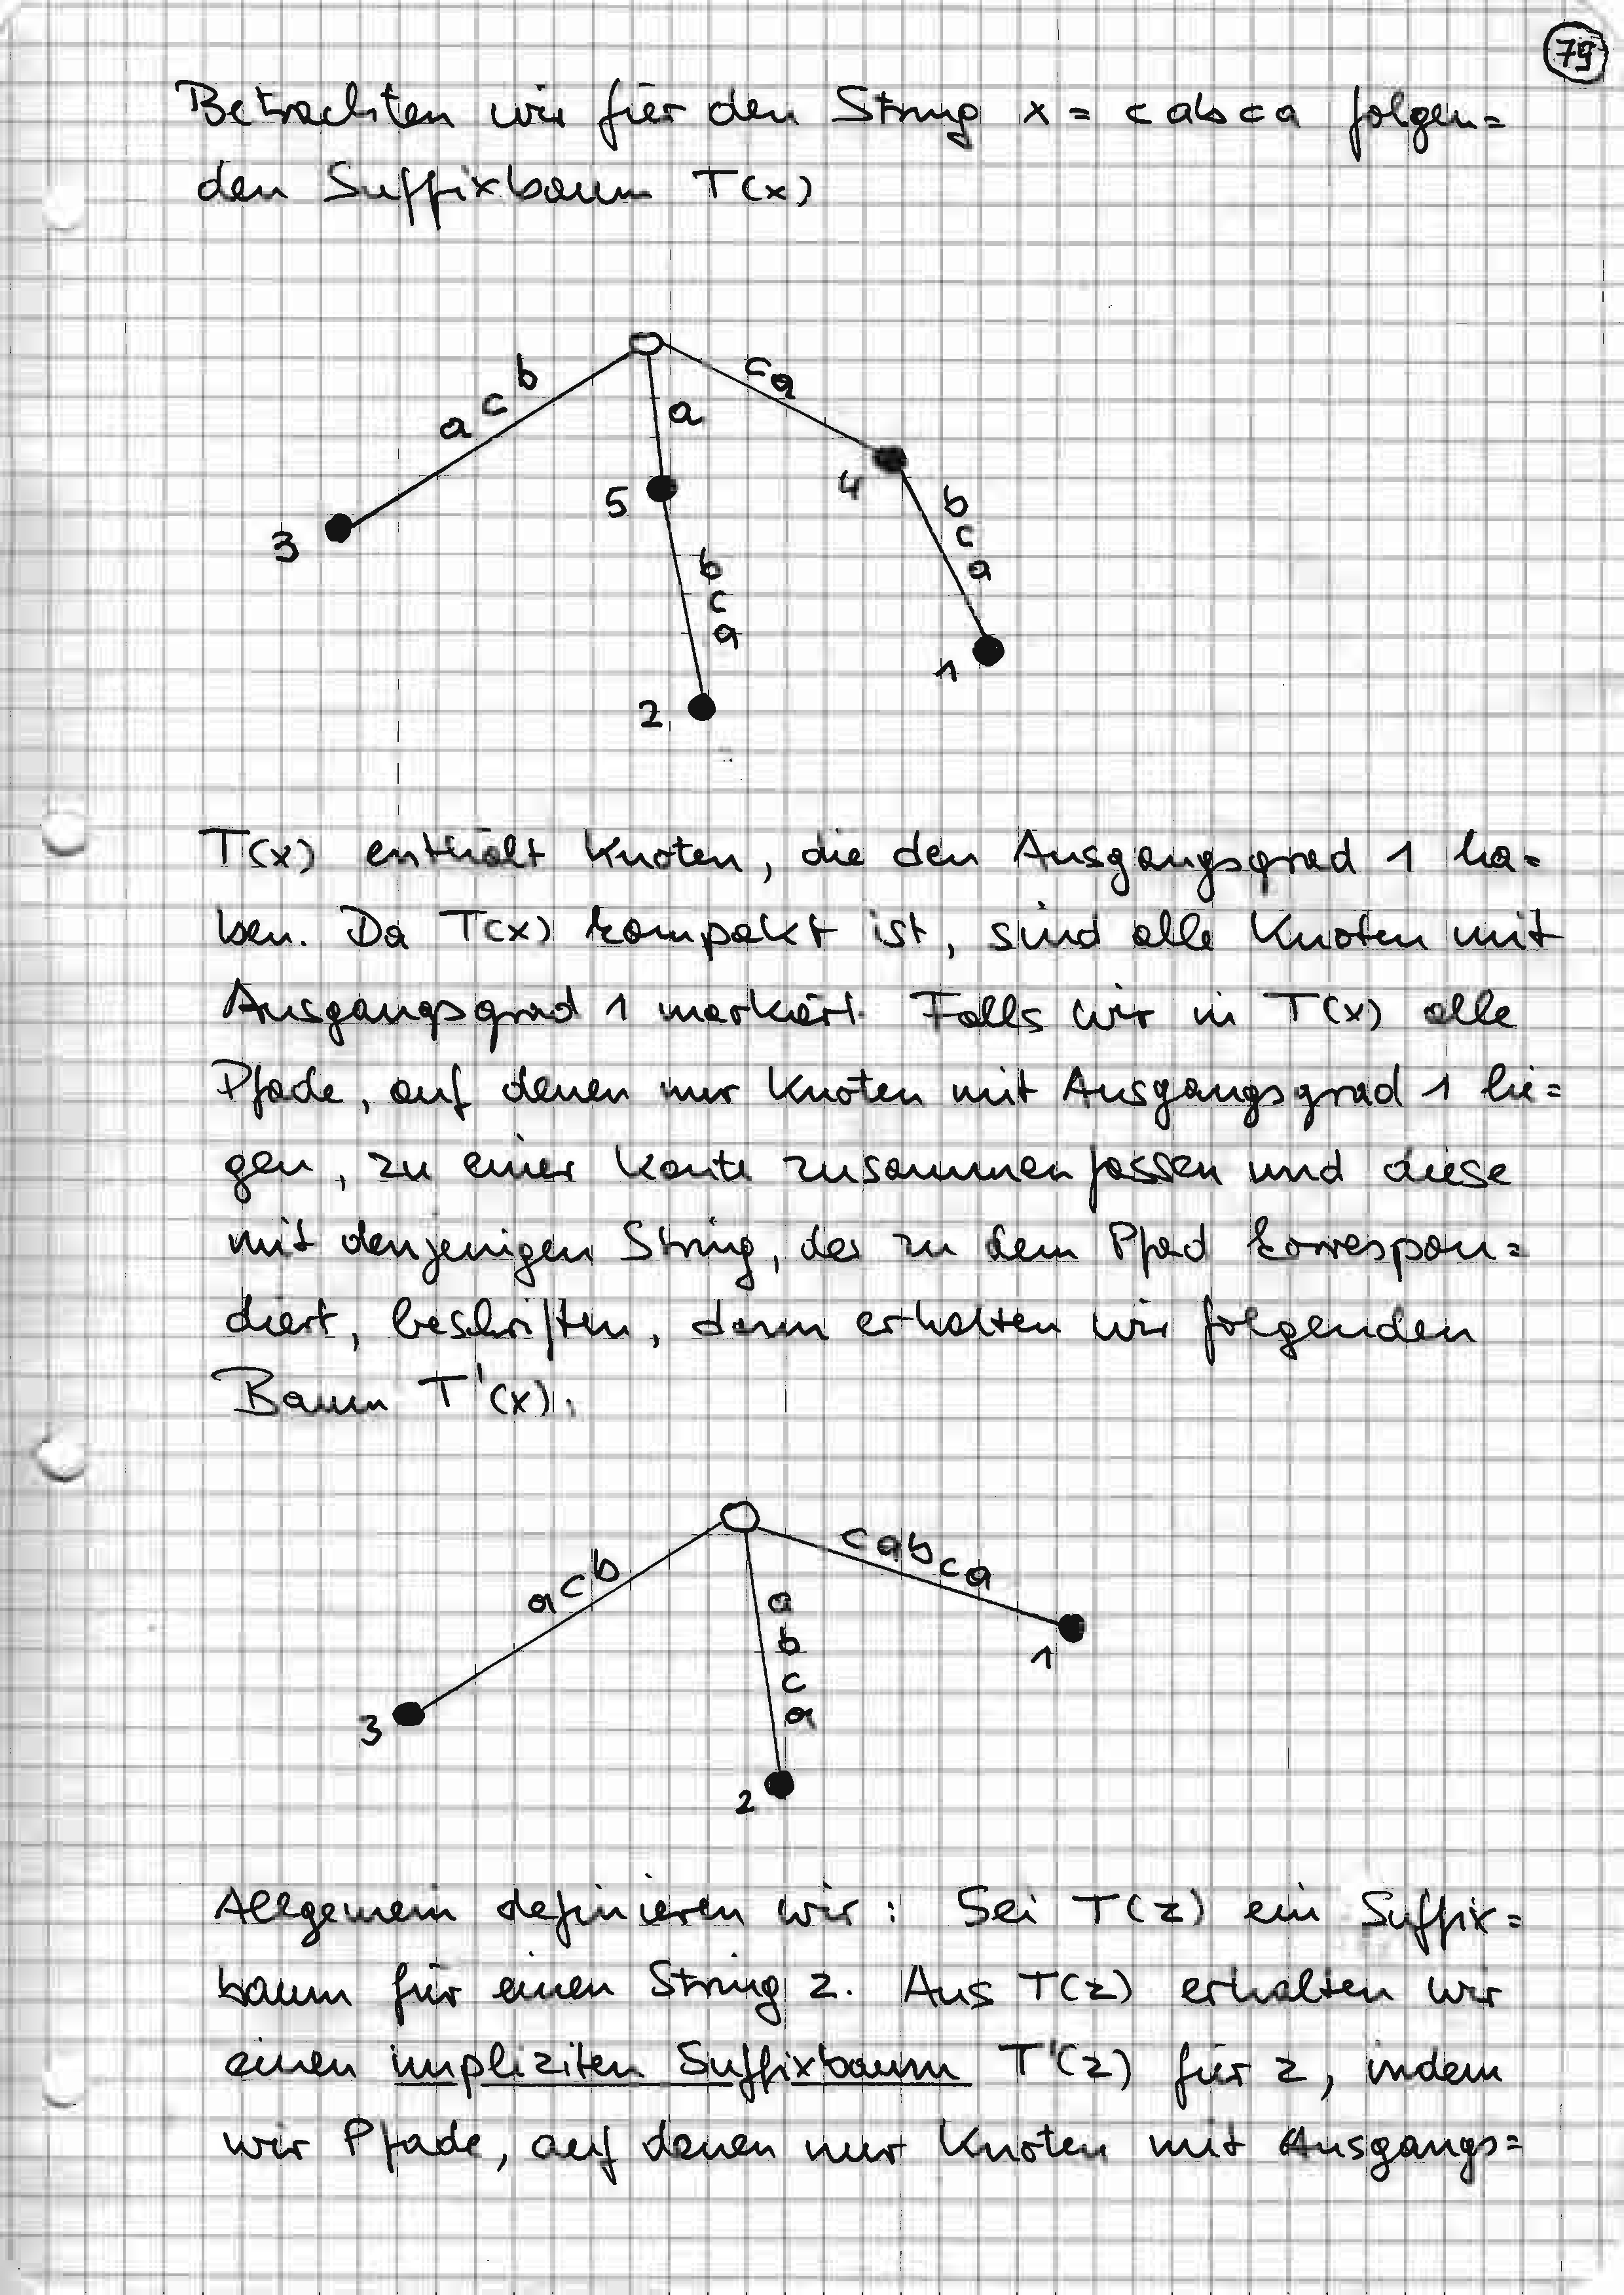 79
Betrachten wir für den String x = cabca folgen=
den Suffixbaum T(x)
b
c
a
a
ca
3
5
4
b
c
a
b
c
a
2
1
T(x) enthält Knoten, die den Ausgangsgrad 1 ha=
ben. Da T(x) kompakt ist, sind alle Knoten mit
Ausgangsgrad 1 markiert. Falls wir in T(x) alle
Pfade, auf denen nur Knoten mit Ausgangsgrad 1 lie=
gen, zu einer Kante zusammenfassen und diese
mit denjenigen String, der zu dem Pfad korrespon=
diert, beschriften, dann erhalten wir folgenden
Baum T'(x).
acb
cabca
a
b
c
a
3
2
1
Allgemein definieren wir: Sei T(z) ein Suffix=
baum für einen String z. Aus T(z) erhalten wir
einen impliziten Suffixbaum T'(z) für z, indem
wir Pfade, auf denen nur Knoten mit Ausgangs=